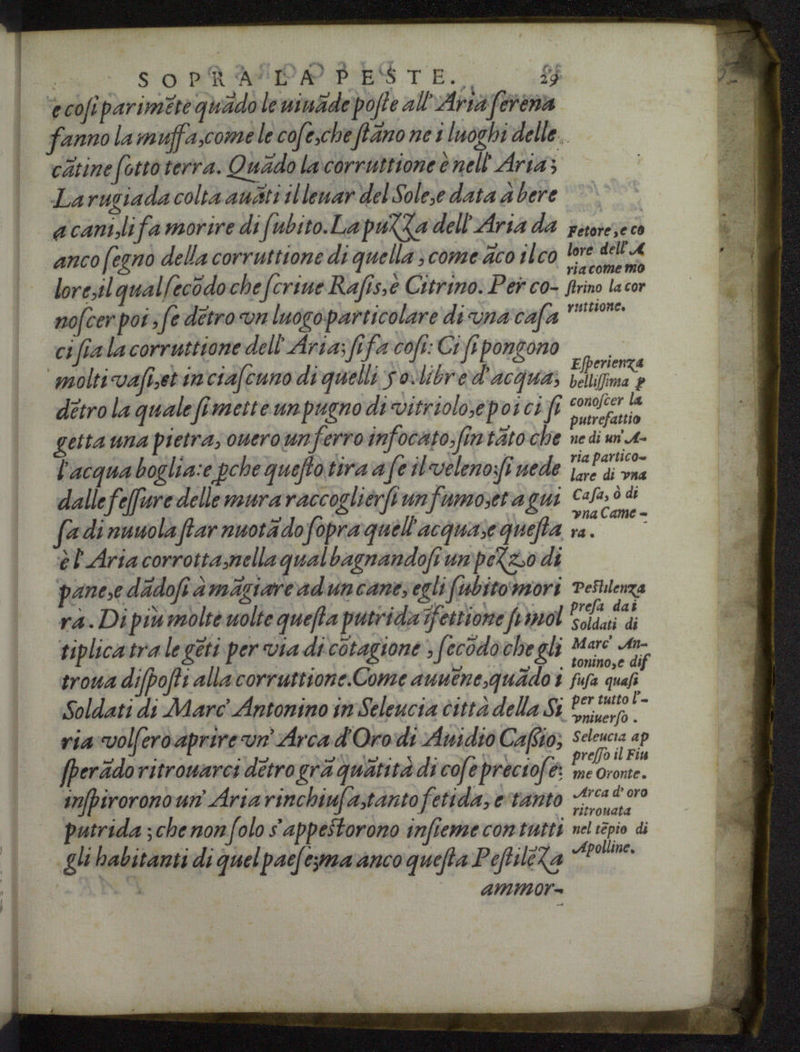 SOPRA LA PESTE. 29
e cosi parimẽte quãdo le uiuãde poste all' Aria serena
fanno la muffa,come le cose,che stãno ne i luoghi delle
cãtine sotto terra. Quãdo la corruttione è nell' Aria;
La rugiada colta auãti il leuar del Sole,e data à bere
a cani,li fa morire di subito. La puzza dell' Aria da
anco segno della corruttione di quella, come ãco il co
lore,il qual secõdo che scriue Rasis,è Citrino. Per co-
noscer poi, se dẽtro vn luogo particolare di vna casa
ci sia la corruttione dell' Aria; si fa cosi: Ci si pongono
molti vasi,et in ciascuno di quelli 50. libre d'acqua,
dẽtro la quale si mette un pugno di vitriolo,e poi ci si
getta una pietra, ouero un ferro infocato,fin tãto che
l'acqua boglia: e ꝑche questo tira a se il veleno;si uede
dalle fessure delle mura raccoglierfi un fumo,et a gui
sa di nuuola star nuotãdo sopra quell' acqua,e questa
è l' Aria corrotta,nella qual bagnandosi un pezzo di
pane,e dãdosi à mãgiare ad un cane, egli subito mori
rà. Di più molte uolte questa putrida ĩfettione si mol
tiplica tra le gẽti per via di cõtagione, secõdo che gli
troua disposti alla corruttione. Come auuẽne,quãdo i
Soldati di Marc' Antonino in Seleucia città della Si
ria volsero aprire vn' Arca d'Oro di Auidio Cassio,
sperãdo ritrouarci dẽtro grã quãtità di cose preciose;
inspirorono un' Aria rinchiusa,tanto fetida, e tanto
putrida; che non solo s'appestorono insieme con tutti
gli habitanti di quel paese;ma anco questa Pestilẽza
ammor-
Fetore, e co
lore dell' A
ria come mo
strino la cor
ruttione.
Esperienza
bellissima ꝑ
conoscer la
putrefattio
ne di un' A-
ria partico-
lare di vna
Casa, ò di
vna Came-
ra.
Pestilenza
presa dai
Soldati di
Marc' An-
tonino,e dif
fusa quasi
per tutto l'-
vniuerso.
Seleucia ap
presso il Fiu
me Oronte.
Arca d'oro
ritrouata
nel tẽpio di
Apolline.